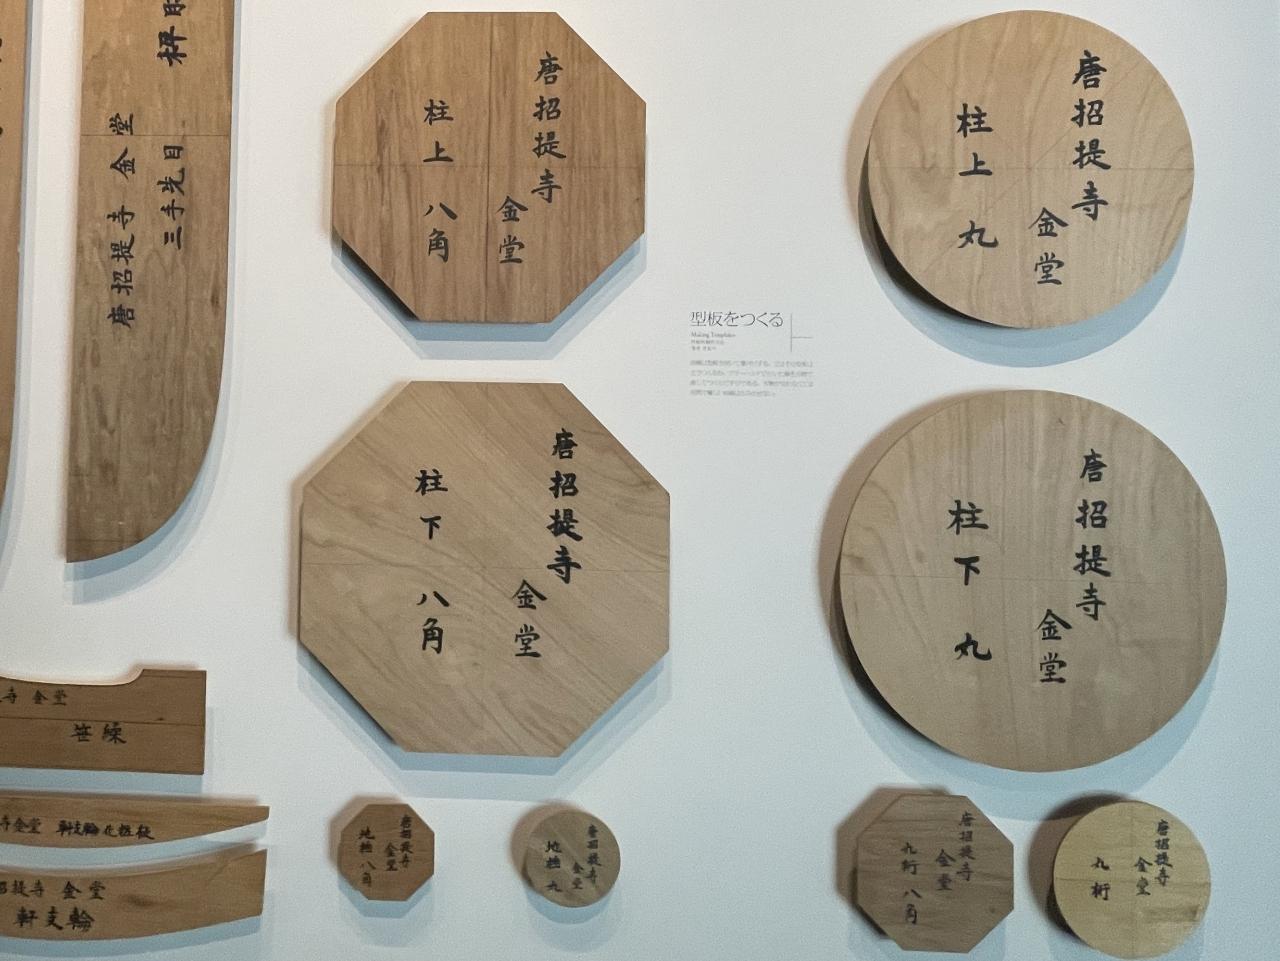 唐招提寺 金堂
三手先目
唐招提寺
金堂
柱上 八角
唐招提寺
金堂
柱上 丸
型板をつくる
Making Templates
唐招提寺
金堂
柱下 八角
唐招提寺
金堂
柱下 丸
寺 金堂
笹繰
寺金堂 軒支輪
招提寺 金堂
軒支輪
唐招提寺
金堂
地垂 八角
唐招提寺
金堂
地垂 丸
唐招提寺
金堂
丸桁 八角
唐招提寺
金堂
丸桁